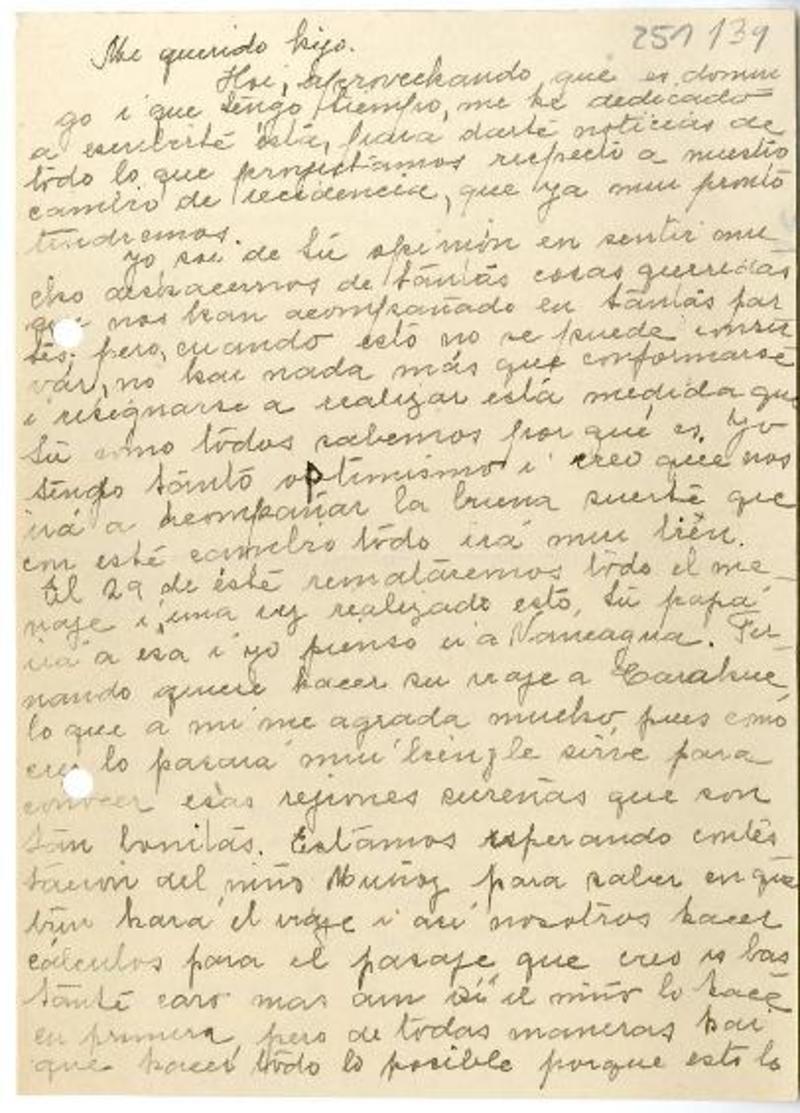 251 139
Mi querido hijo.
Hoi, aprovechando que es domin
go i que tengo tiempo, me he dedicado
a escribirte ésta, para darte noticias de
todo lo que proyectamos respecto a nuestro
cambio de recidencia, que ya mui pronto
tendremos.
Yo soi de tú opinión en sentir mu
cho desacernos de tántas cosas queridas
que nos han acompañado en tántas par
tes; pero, cuando esto no se puede conser
var, no hai nada más que conformarse
i resignarse a realizar está medida que
tú como todos sabemos por qué es. Yo
tengo tánto optimismo i creo que nos
irá a acompañar la buena suerte que
con este cambio todo irá mui bién.
El 29 de éste remataremos todo el me_
naje i, una vez realizado esto, tú papá
irá a esa i yo pienso ir a Nancagua. Fer_
nando quiere hacer su viaje a Carahue,
lo que a mí me agrada mucho, pues como
creo lo pasará mui bien, i le sirve para
conocer esas rejiones sureñas que son
tán bonitas. Estamos esperando contes
tación del niño Muñoz para saber en qué
trén hará el viaje i así nosotros hacer
cálculos para el pasaje, que creo es bas
tánte caro mas aun si el niño lo hace
en primera, pero de todas maneras hai
que hacer todo lo posible porque esto lo